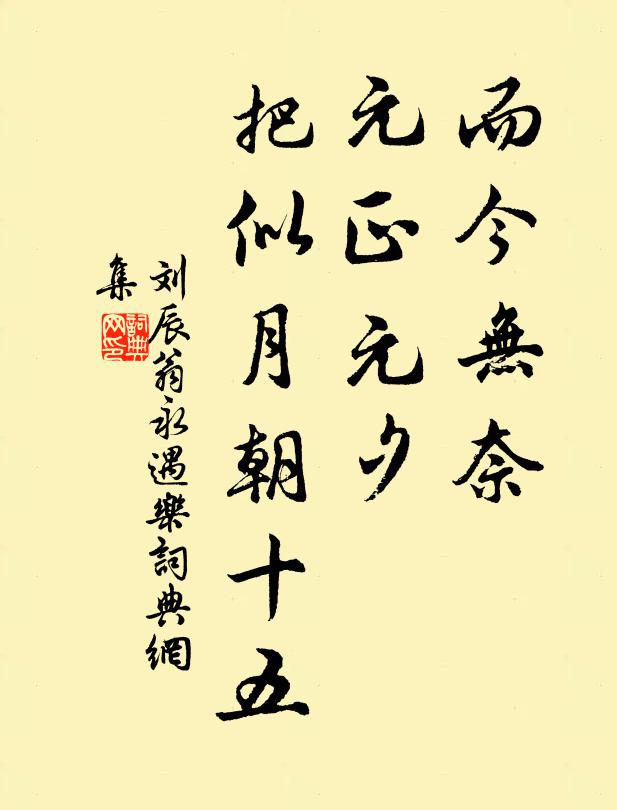 而今無奈
元正元夕
把似月朝十五
刘辰翁永遇樂詞典網
集
詞典
网印